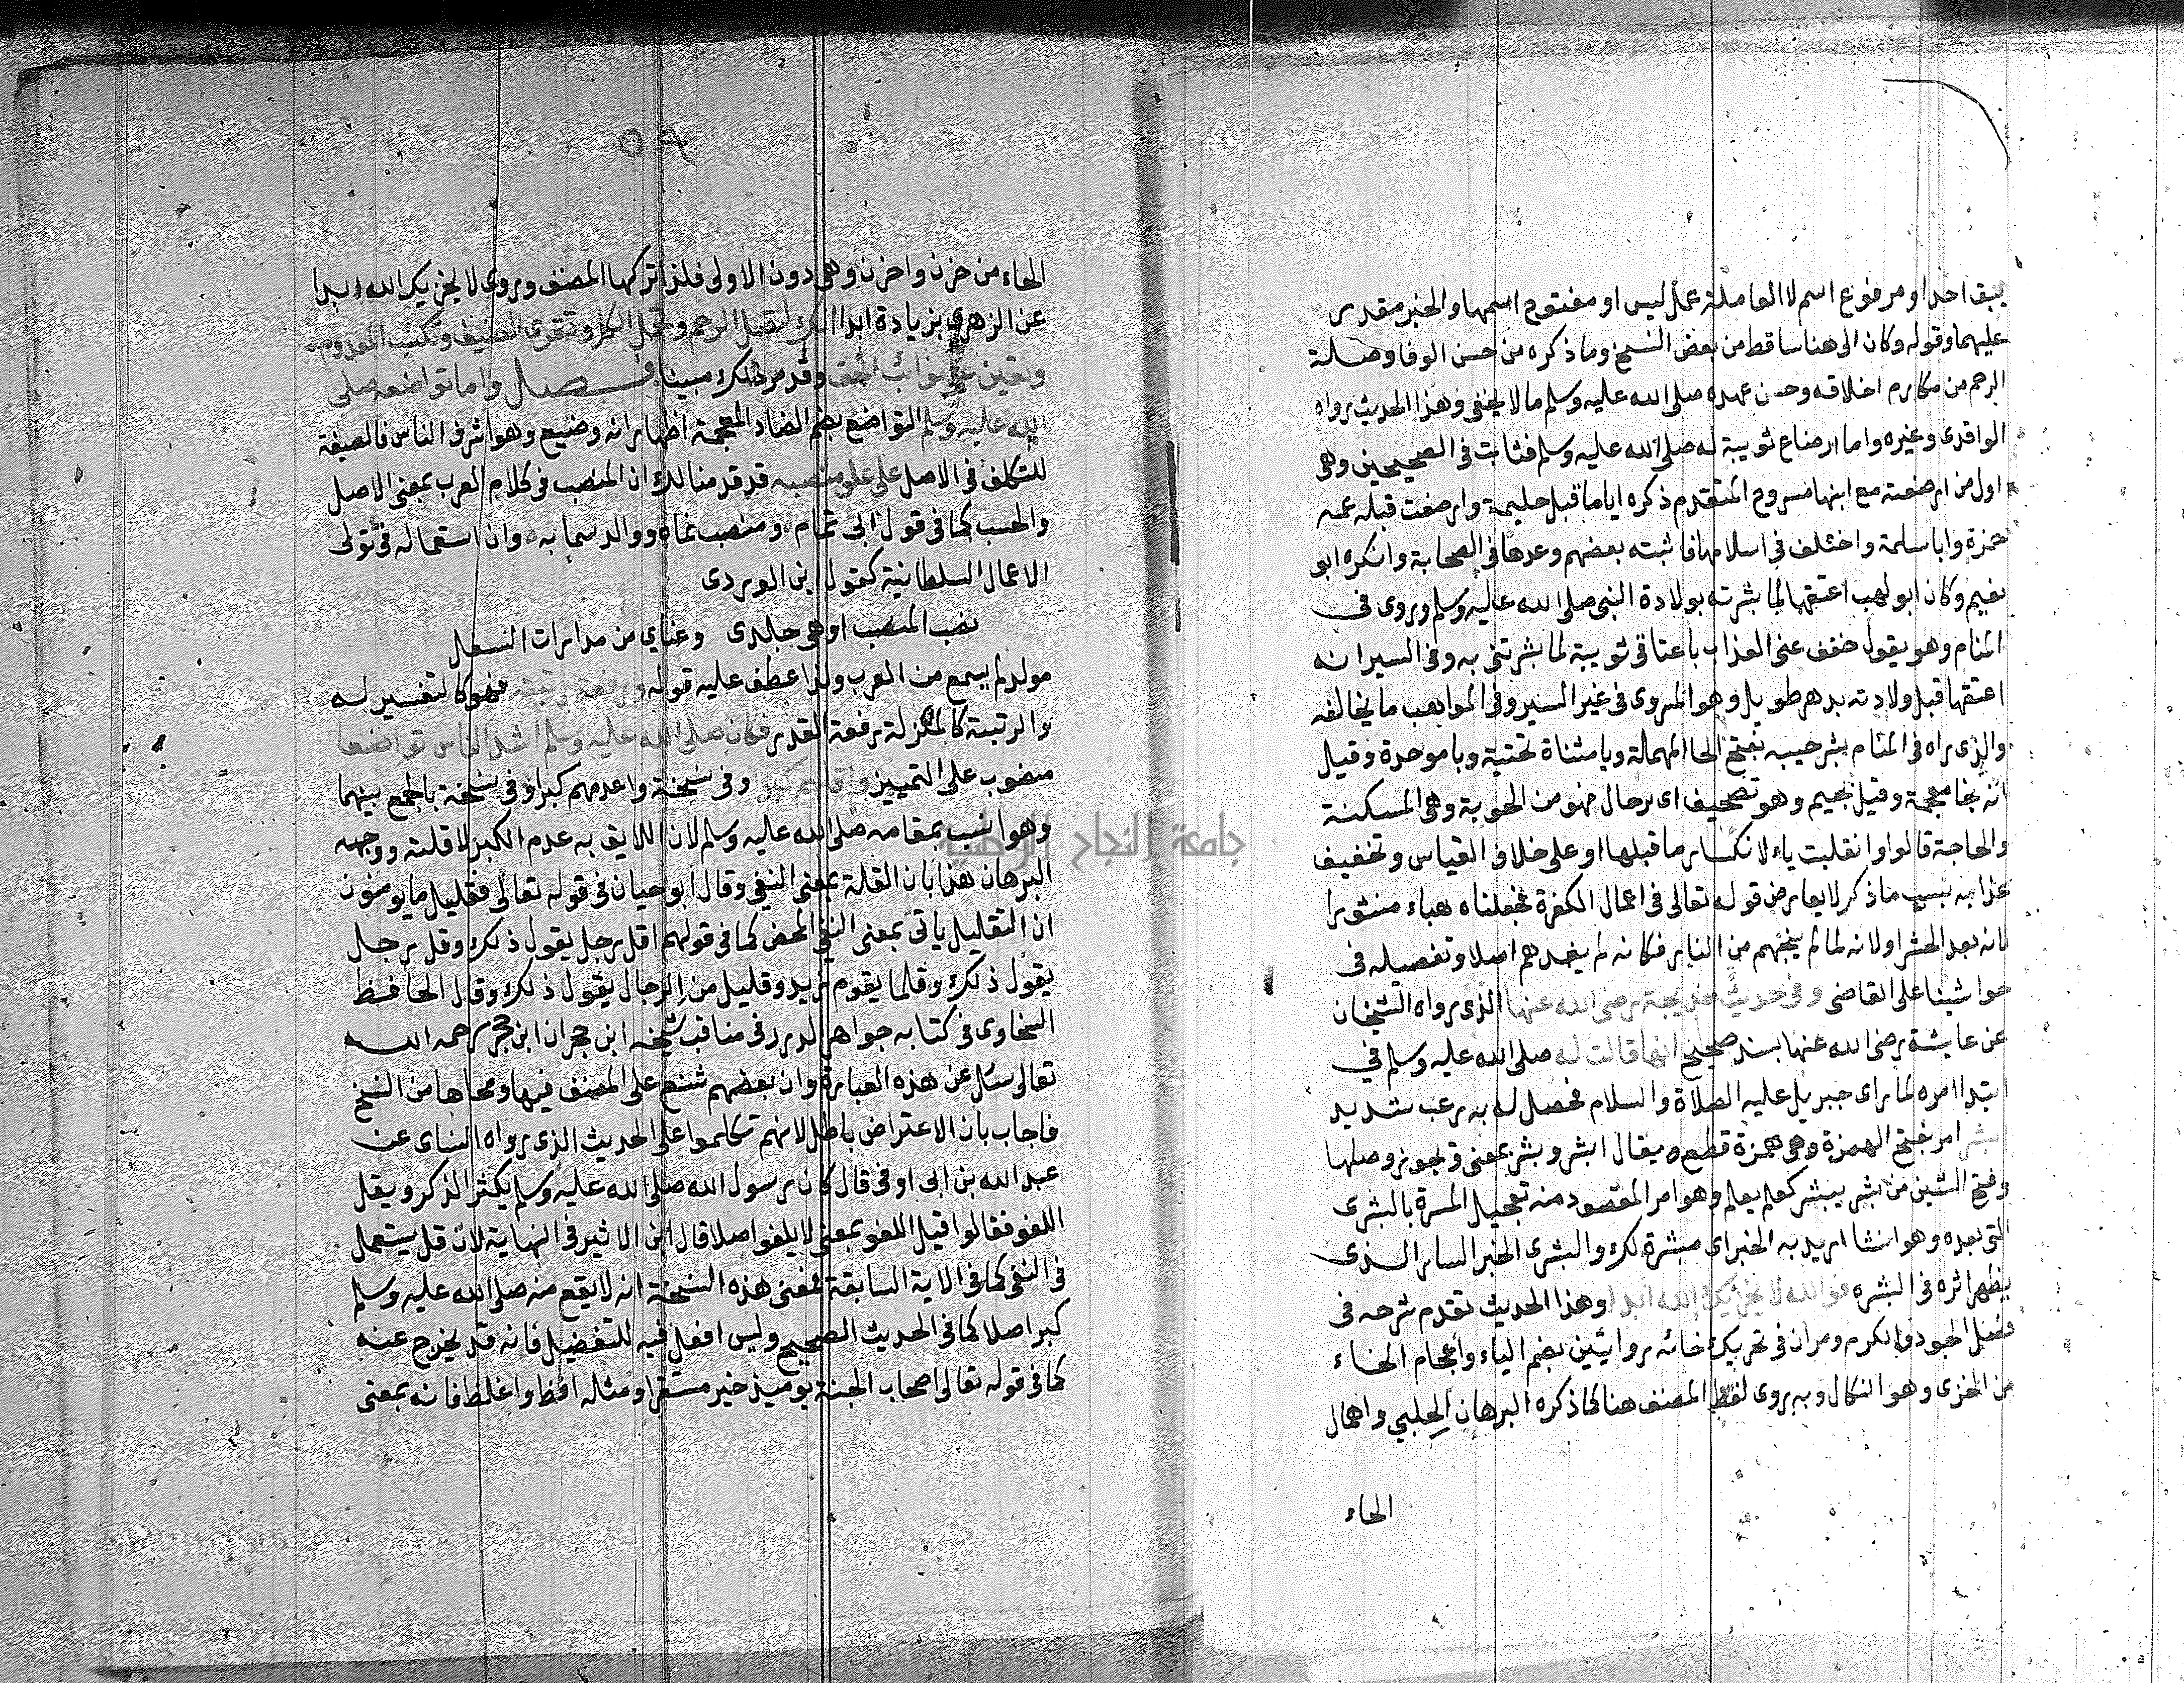 يبق احد او مرفوع اسم لا العاملة عمل ليس او مفتوح اسمها والخبر مقدر
عليهما وقوله وكان الى هنا ساقط من بعض النسخ وما ذكره من حسن الوفا وصلة
الرحم من مكارم اخلاقه وحسن عهده صلى الله عليه وسلم ما لا يخفى وهذا الحديث رواه
الواقدى وغيره واما ارضاع ثويبة له صلى الله عليه وسلم فثابت فى الصحيحين وهى
اول من ارضعته مع ابنها مسروح المتقدم ذكره اياما قبل حليمة وارضعت قبله عمه
حمزة وابا سلمة واختلف فى اسلامها فاثبته بعضهم وعدها فى الصحابة وانكره ابو
نعيم وكان ابو لهب اعتقها لما بشرته بولادة النبى صلى الله عليه وسلم وروى فى
المنام وهو يقول خفف عنى العذاب باعتاقى ثويبة لما بشرتنى به وفى السير انه
اعتقها قبل ولادته بدهر طويل وهو المروى فى غير السير وفى المواهب ما يخالفه
والذى راه فى المنام بشر حيبه بفتح الحا المهملة ويا مثناة تحتية وبا موحدة وقيل
انه بخا معجمة وقيل بجيم وهو تصحيف اى بحال فهو من الحوبة وهى المسكنة
والحاجة قالوا وانقلبت ياء لانكسار ما قبلها او على خلاف القياس وتخفيف
عذابه بسبب ما ذكر لا يعارض قوله تعالى فى اعمال الكفرة فجعلناه هباء منثورا
لانه بعد الحشر اولانه لما لم ينجهم من النار فكانه لم يفدهم اصلا وتفصيله فى
حواشينا على القاضى وفى حديث خديجة رضى الله عنها الذى رواه الشيخان
عن عايشة رضى الله عنها بسند صحيح انها قالت له صلى الله عليه وسلم فى
ابتدا امره لما راى جبريل عليه الصلاة والسلام فحصل له به رعب شديد
ابشر امر بفتح الهمزة وهى همزة قطع ويقال ابشر وبشر بمعنى ويجوز وصلها
وفتح الشين من بشر يبشر كعلم يعلم وهو امر المقصود منه تعجيل المسرة بالبشرى
التى بعده وهو انشا اريد به الخبر اى مبشرة لك والبشرى الخبر السار الذى
يظهر اثره فى البشره فو الله لا يخزيك الله ابدا وهذا الحديث تقدم شرحه فى
فضل الجود والكرم ومر ان فى تحريك خائه روايتين بضم الياء واعجام الخاء
من الخزى وهو النكال وبه روى لفظ المصنف هنا كما ذكره البرهان الحلبي واهمال
الحاء
٥٨
الحاء من حزن واحزن وهى دون الاولى فلذا تركها المصنف وروى لا يخزيك الله ابدا
عن الزهرى بزيادة ابدا انك لتصل الرحم وتحمل الكل وتقرى الضيف وتكسب المعدوم
وتعين على نوائب الحق وقد مر ذلك مبينا فصل واما تواضعه صلى
الله عليه وسلم التواضع بضم الضاد المعجمة اظهار انه وضيع وهو اشرف الناس فالصيغة
للتكلف فى الاصل على علو منصبه قد قدمنا لك ان المنصب فى كلام العرب بمعنى الاصل
والحسب كما فى قول ابى تمام ه ومنصب نماه ووالد سما به ه وان استعماله فى تولى
الاعمال السلطانية كقول ابن الوردى
نصب المنصب اوهى جلدى وعناي من مدارات السفل
مولد لم يسمع من العرب ولذا عطف عليه قوله ورفعة رتبته فهو كالتفسير له
والرتبة كالمنزلة رفعة القدر فكان صلى الله عليه وسلم اشد الناس تواضعا
منصوب على التمييز واقلهم كبرا وفى نسخة واعدمهم كبرا وفى نسخة بالجمع بينهما
وهو انسب بمقامه صلى الله عليه وسلم لان اللايق به عدم الكبر لا قلته ووجهه
البرهان هذا بان القلة بمعنى النفى وقال ابو حيان فى قوله تعالى فقليل ما يومنون
ان التقليل ياتى بمعنى النفى المحض كما فى قولهم اقل رجل يقول ذلك وقل رجل
يقول ذلك وقلما يقوم زيد وقليل من الرجال يقول ذلك وقال الحافظ
السخاوى فى كتابه جواهر الدرر فى مناقب شيخه ابن حجر ان ابن حجر رحمه الله
تعالى سئل عن هذه العبارة وان بعضهم شنع على المصنف فيها ومحاها من النسخ
فاجاب بان الاعتراض باطل لانهم تكلموا على الحديث الذى رواه النساى عن
عبد الله بن ابى اوفى قال كان رسول الله صلى الله عليه وسلم يكثر الذكر ويقل
اللغو فقالوا قيل اللغو بمعنى لا يلغوا اصلا قال ابن الاثير فى النهاية لان قل يستعمل
فى النفى كما فى الاية السابقة فمعنى هذه النسخة انه لا يقع منه صلى الله عليه وسلم
كبر اصلا كما فى الحديث الصحيح وليس افعل فيه للتفضيل فانه قد يخرج عنه
كما فى قوله تعالى اصحاب الجنة يوميذ خير مستقرا ومثاله افظ واغلظ فانه بمعنى
جامعة النجاح الوطنية